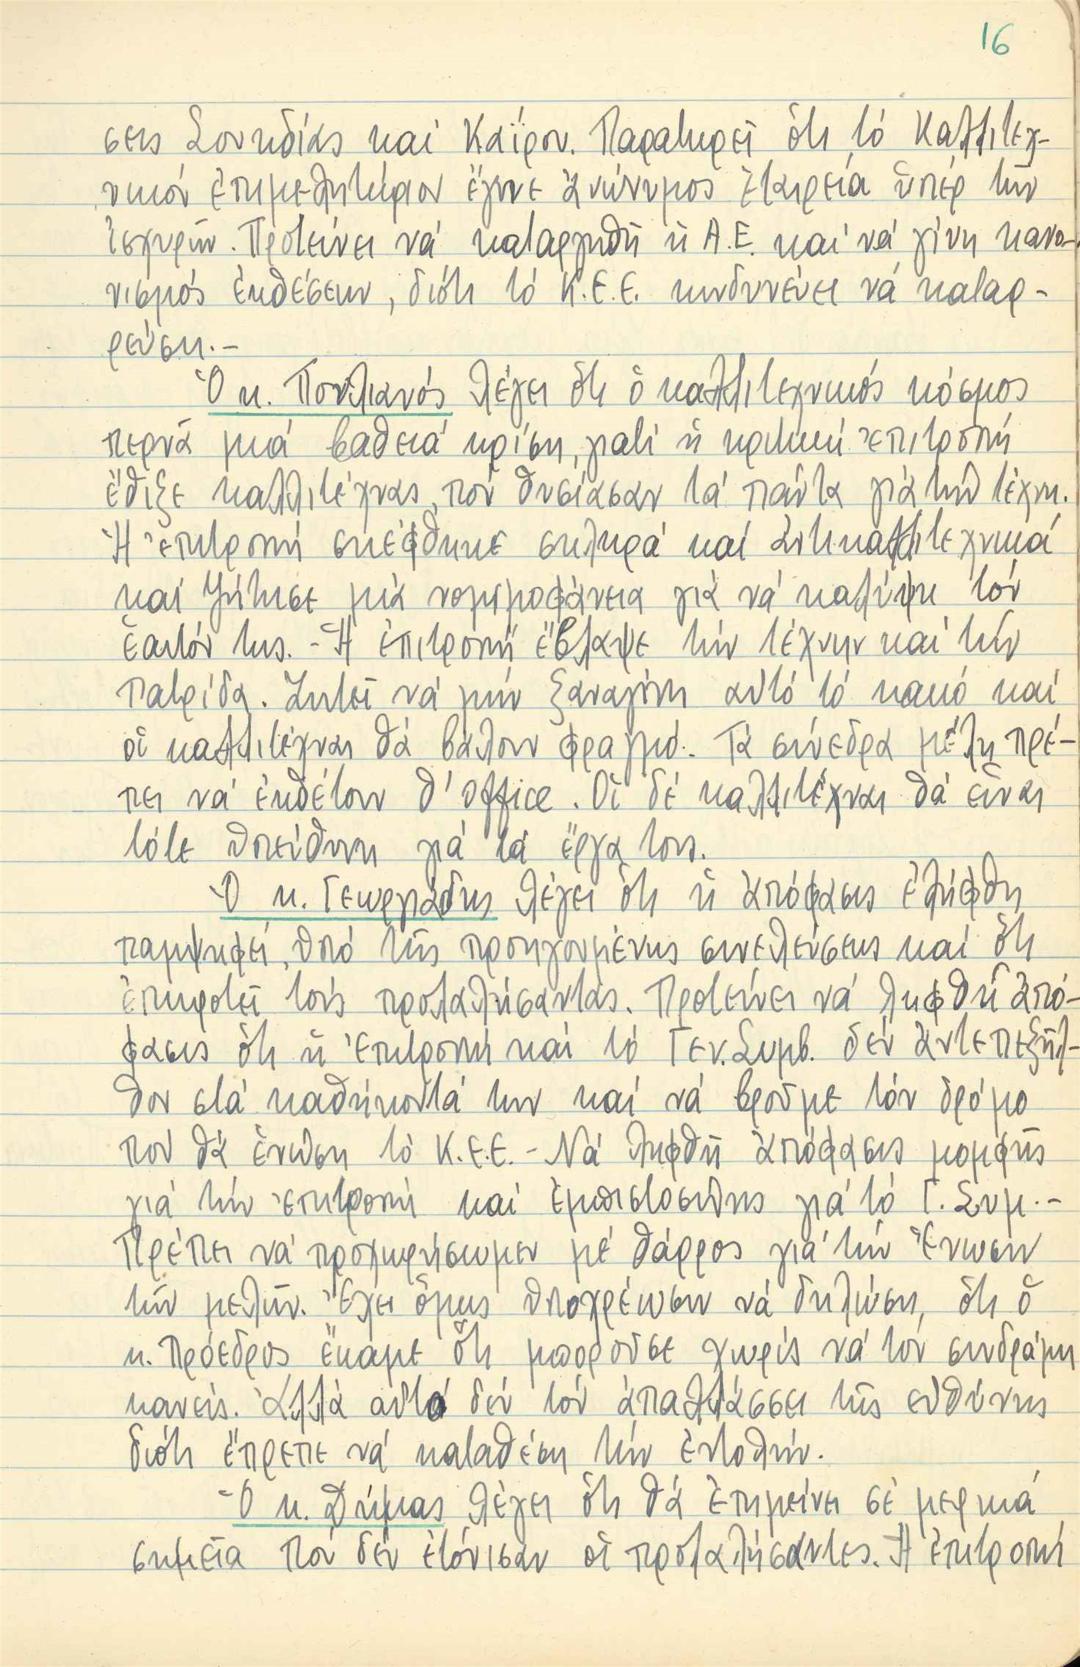 16
σεις Σουηδίας καί Καΐρου. Παρατηρεῖ ὅτι τό Καλλιτεχ-
νικόν ἐπιμελητήριον ἔγινε ἀνώνυμος ἑταιρεία ὑπέρ τῶν
ἰσχυρῶν. Προτείνει νά καταργηθῆ ἡ Α.Ε. καί νά γίνη κανο-
νισμός ἐκθέσεων, διότι τό Κ.Ε.Ε. κινδυνεύει νά καταρ-
ρεύση.-
Ὁ κ. Πουλιανός λέγει ὅτι ὁ καλλιτεχνικός κόσμος
περνᾶ μιά βαθειά κρίση, γιατί ἡ κριτική ἐπιτροπή
ἔθιξε καλλιτέχνας πού θυσίασαν τά πάντα γιά τήν τέχνη.
Ἡ ἐπιτροπή σκέφθηκε σκληρά καί ἀντικαλλιτεχνικά
καί ζήτησε μιά νομιμοφάνεια γιά νά καλύψη τόν
ἑαυτόν της. - Ἡ ἐπιτροπή ἔβλαψε τήν τέχνην καί τήν
πατρίδα. Ζητεῖ νά μήν ξαναγίνη αὐτό τό κακό καί
οἱ καλλιτέχναι θά βάλουν φραγμό. Τά σύνεδρα μέλη πρέ-
πει νά ἐκθέτουν d'office. Οἱ δέ καλλιτέχναι θά εἶναι
τότε ὑπεύθυνοι γιά τά ἔργα τους.
Ὁ κ. Γεωργιάδης λέγει ὅτι ἡ ἀπόφασις ἐλήφθη
παμψηφεί ὑπό τῆς προηγουμένης συνελεύσεως καί ὅτι
ἐπικροτεῖ τούς προλαλήσαντας. Προτείνει νά ληφθῆ ἀπό-
φασις ὅτι ἡ Ἐπιτροπή καί τό Γεν. Συμβ. δέν ἀντεπεξῆλ-
θον στά καθήκοντά των καί νά βροῦμε τόν δρόμο
πού θά ἑνώση τό Κ.Ε.Ε. - Νά ληφθῆ ἀπόφασις μομφῆς
γιά τήν ἐπιτροπή καί ἐμπιστοσύνης γιά τό Γ. Συμ.-
Πρέπει νά προχωρήσωμεν μέ θάρρος γιά τήν Ἕνωσιν
τῶν μελῶν. Ἔχει ὅμως ὑποχρέωσιν νά δηλώση, ὅτι ὁ
κ. Πρόεδρος ἔκαμε ὅτι μποροῦσε χωρίς νά τόν συνδράμη
κανείς. Ἀλλά αὐτό δέν τόν ἀπαλλάσσει τῆς εὐθύνης
διότι ἔπρεπε νά καταθέση τήν ἐντολήν.
Ὁ κ. Δήμας λέγει ὅτι θά ἐπιμείνει σέ μερικά
σημεῖα πού δέν ἐτόνισαν οἱ προλαλήσαντες. Ἡ ἐπιτροπή